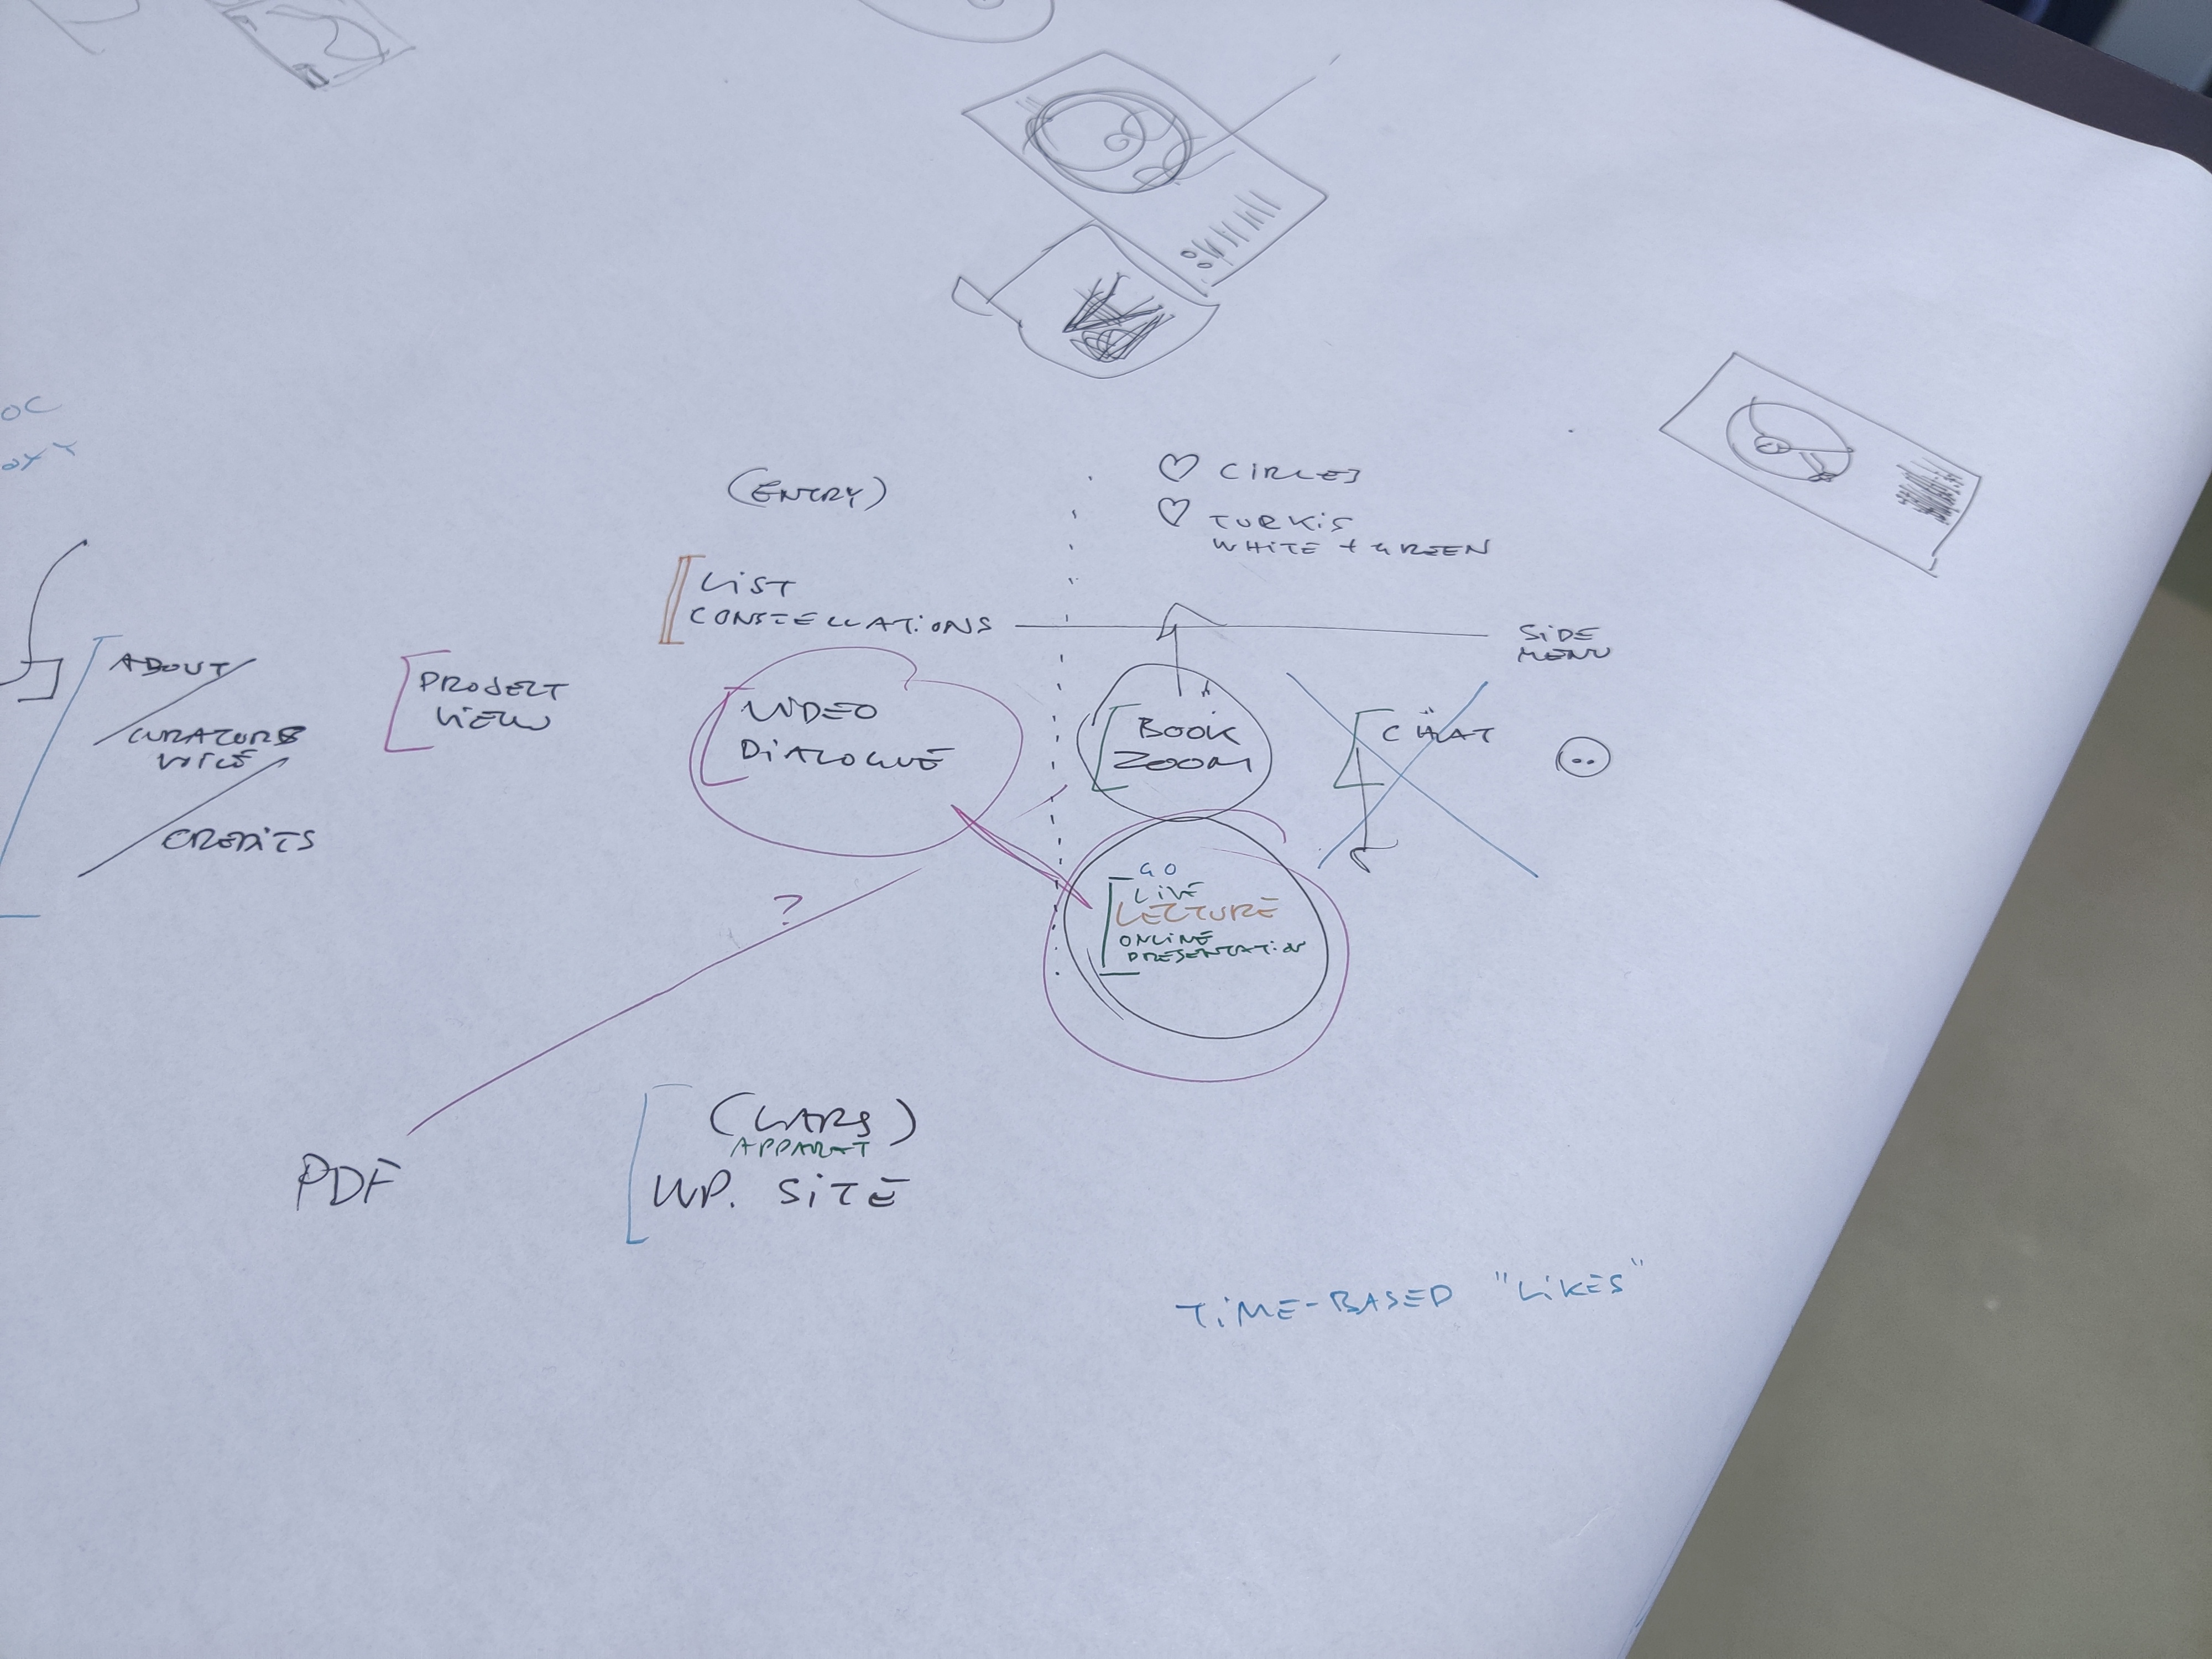 (ENTRY)
♡ CIRCLES
♡ TURKIS
WHITE + GREEN
LIST
CONSTELLATIONS
SIDE
MENU
ABOUT
CURATORS
VOICE
CREDITS
PROJECT
VIEW
VIDEO
DIALOGUE
BOOK
ZOOM
CHAT
GO
LIVE
LECTURE
ONLINE
PRESENTATION
?
PDF
(LARS)
APPARAT
WP. SITE
TIME-BASED "LIKES"